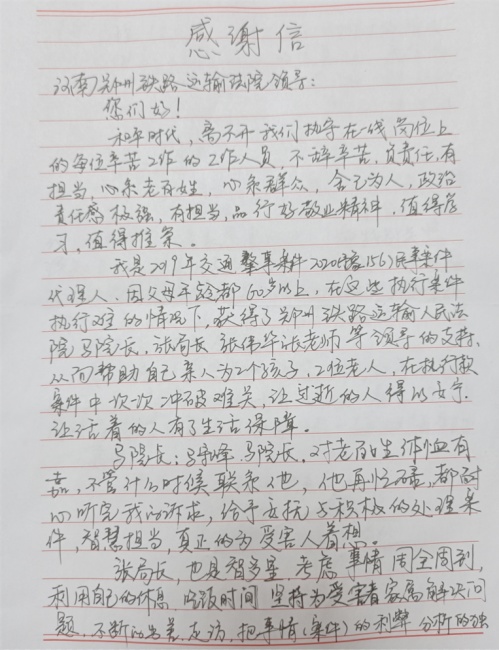 感谢信
河南郑州铁路运输法院领导:
您们好!
和平时代,离不开我们执守在一线岗位上
的每位辛苦工作的工作人员,不辞辛苦,负责任,有
担当,心系老百姓,心系群众,舍己为人,政治
责任感极强,有担当,品行好敬业精神,值得学
习,值得推荐。
我是2019年交通肇事案件2020豫
代理人、因父母年龄都60岁以上,在这些执行案件
执行难的情况下,获得了郑州铁路运输人民法
院马院长,张局长,张伟华张老师等领导的支持,
从而帮助自己亲人为2个孩子,2位老人,在执行款
案件中次次冲破难关,让过逝的人得以安宁.
让活着的人有了生活保障。
马院长:马院长,对老百生体恤有
嘉,不管什么时候联系他,他再忙碌,都耐
心听完我的诉求,给予安抚与积极的处理案
件,智慧担当,真正的为受害人着想。
张局长,也是智多星 考虑事情周全周到,
利用自己的休息,吃饭时间 坚持为受害者家属解决问
题,不断的出差走访,把事情(案件)的利弊 分析的